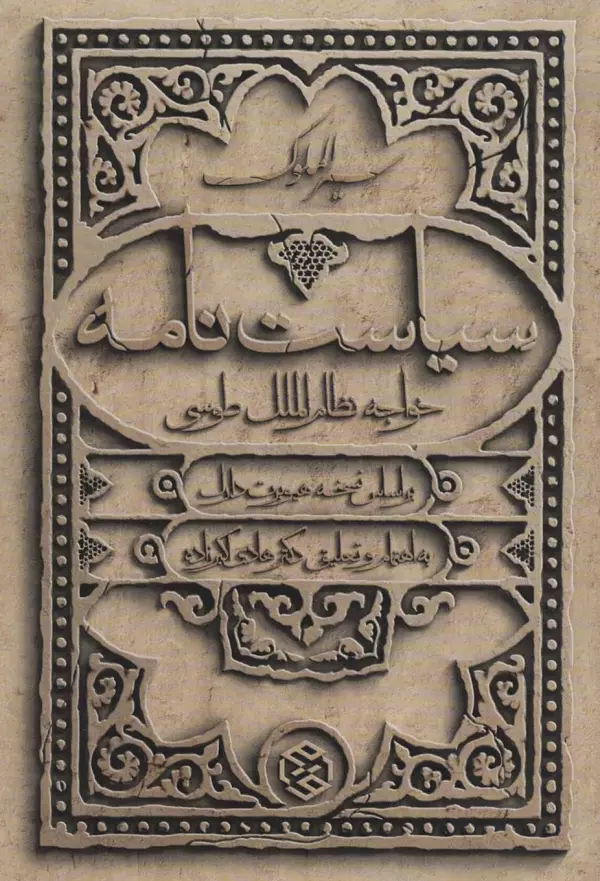 سیر الملوک
سیاست‌نامه
خواجه نظام الملک طوسی
بر اساس نسخه هیوبرت دارک
به اهتمام و تعلیق دکتر هادی اکبرزاده